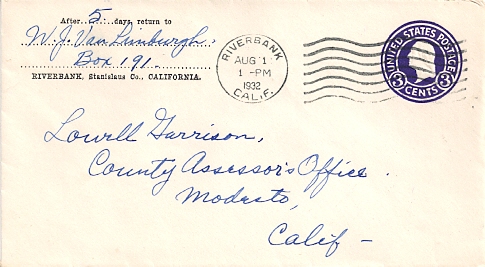 After 5 days, return to
W. J. Van Limburgh.
Box 191.
RIVERBANK, Stanislaus Co., CALIFORNIA.
RIVERBANK
AUG 1
1-PM
1932
CALIF.
UNITED STATES POSTAGE
3 3
CENTS
Lowell Garrison,
County Assessor's Office.
Modesto,
Calif-